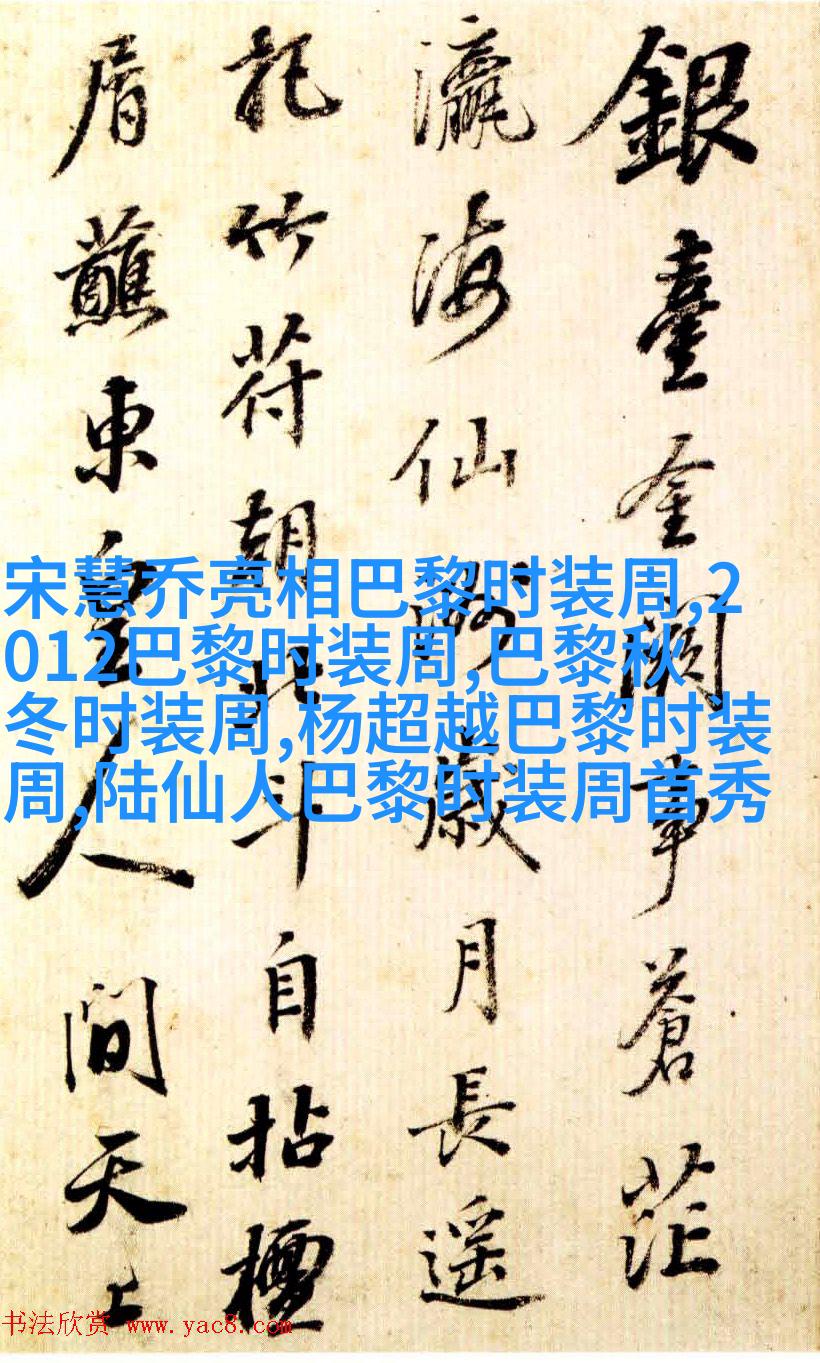 銀臺金闕事蒼茫
瀛海仙酬歲月長遥
記竹符朝北斗自拈檀
屑蘸東皇人間天上
宋慧乔亮相巴黎时装周,2
012巴黎时装周,巴黎秋
冬时装周,杨超越巴黎时装
周,陆仙人巴黎时装周首秀
书法欣赏 www.yac8.com